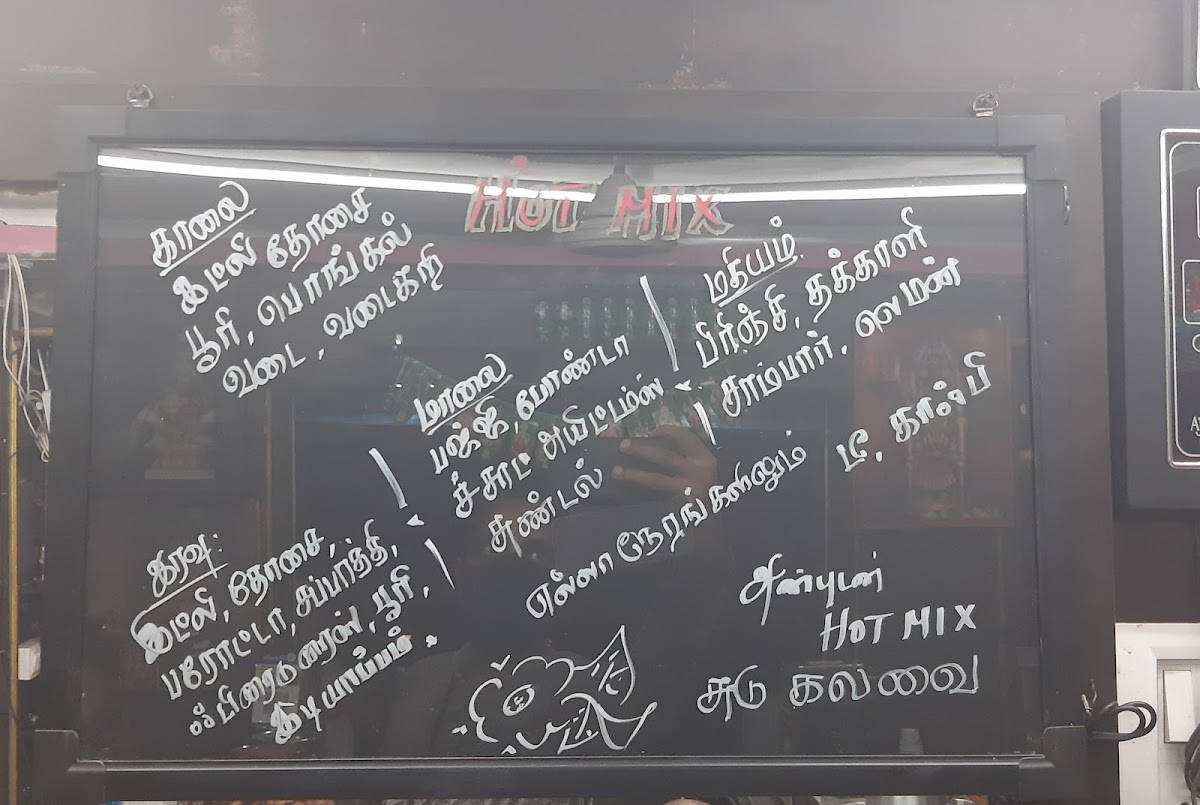 HOT MIX
காலை
இட்லி தோசை
பூரி, பொங்கல்
வடை, வடைகறி
மதியம்
பிரிஞ்சி, தக்காளி
சாம்பார், லெமன்
மாலை
பஜ்ஜி, போண்டா
சாட் அயிட்டம்ஸ்
சுண்டல்
இரவு:
இட்லி, தோசை,
பரோட்டா, சப்பாத்தி,
ஃபிரைடுரைஸ், பூரி,
இடியாப்பம்.
எல்லா நேரங்களிலும் டீ, காஃபி
அன்புடன்
HOT MIX
சுடு கலவை